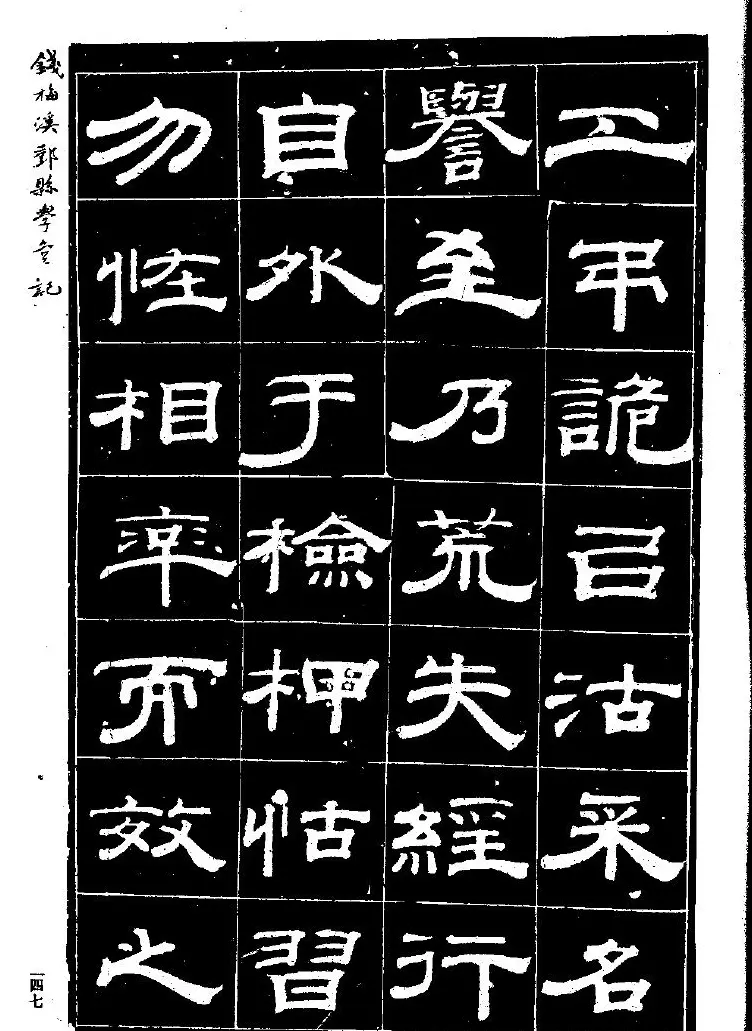 工弔詭㠯沽采名
譽至乃荒失經行
自外于檢柙怙習
勿恠相率而效之
錢梅溪縣學宮記
一四七